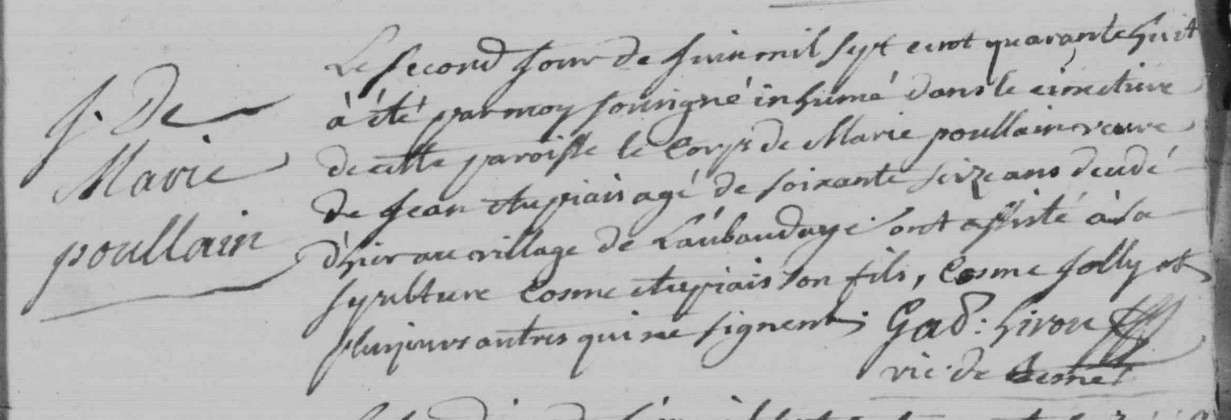 S. De
Marie
poullain
Le second jour de juin mil sept cent quarante huit
à été par moy sousigné inhumé dans le cimetiere
de cette paroisse le Corps de Marie poullain veuve
de Jean agé de soixante seize ans decedé
d'hier au village de Laubaudaye. ont assisté à sa
sepulture Cosme son fils, Cosme Jolly et
plusieurs autres qui ne signent.
vic: de